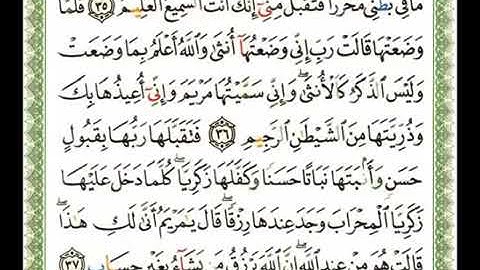 مَا فِي بَطْنِي مُحَرَّرًا فَتَقَبَّلْ مِنِّيٓ إِنَّكَ أَنتَ ٱلسَّمِيعُ ٱلْعَلِيمُ ٣٥ فَلَمَّا
وَضَعَتْهَا قَالَتْ رَبِّ إِنِّي وَضَعْتُهَآ أُنثَىٰ وَٱللَّهُ أَعْلَمُ بِمَا وَضَعَتْ
وَلَيْسَ ٱلذَّكَرُ كَٱلْأُنثَىٰ ۖ وَإِنِّي سَمَّيْتُهَا مَرْيَمَ وَإِنِّيٓ أُعِيذُهَا بِكَ
وَذُرِّيَّتَهَا مِنَ ٱلشَّيْطَٰنِ ٱلرَّجِيمِ ٣٦ فَتَقَبَّلَهَا رَبُّهَا بِقَبُولٍ
حَسَنٍ وَأَنۢبَتَهَا نَبَاتًا حَسَنًا وَكَفَّلَهَا زَكَرِيَّا ۖ كُلَّمَا دَخَلَ عَلَيْهَا
زَكَرِيَّا ٱلْمِحْرَابَ وَجَدَ عِندَهَا رِزْقًا ۖ قَالَ يَٰمَرْيَمُ أَنَّىٰ لَكِ هَٰذَا ۖ
قَالَتْ هُوَ مِنْ عِندِ ٱللَّهِ ۖ إِنَّ ٱللَّهَ يَرْزُقُ مَن يَشَآءُ بِغَيْرِ حِسَابٍ ٣٧